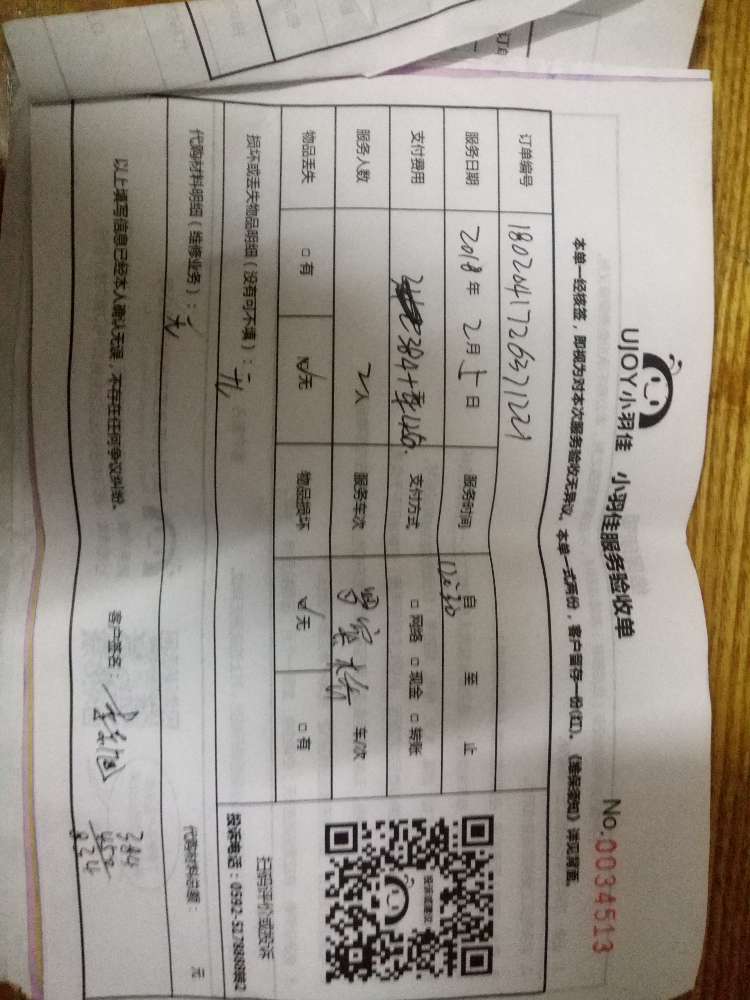 UJOY小羽佳 小羽佳服务验收单
No.0034513
本单一经核签，即视为对本次服务验收无异议。本单一式两份，客户留存一份(红)。《维保须知》详见背面。
订单编号 1802041726371221
服务日期 2018年2月5日 服务时间 自 至 止
支付费用 支付方式 □网络 □现金 □转账
服务人数 2人 服务车次 车/次
物品丢失 □有 ☑无 物品损坏 ☑无 □有
损坏或丢失物品明细（没有可不填）：无
扫码评价或投诉
代购材料明细（维修业务）：无 代购材料总额： 元
以上填写信息已经本人确认无误，不存在任何争议纠纷。 客户签名：
384